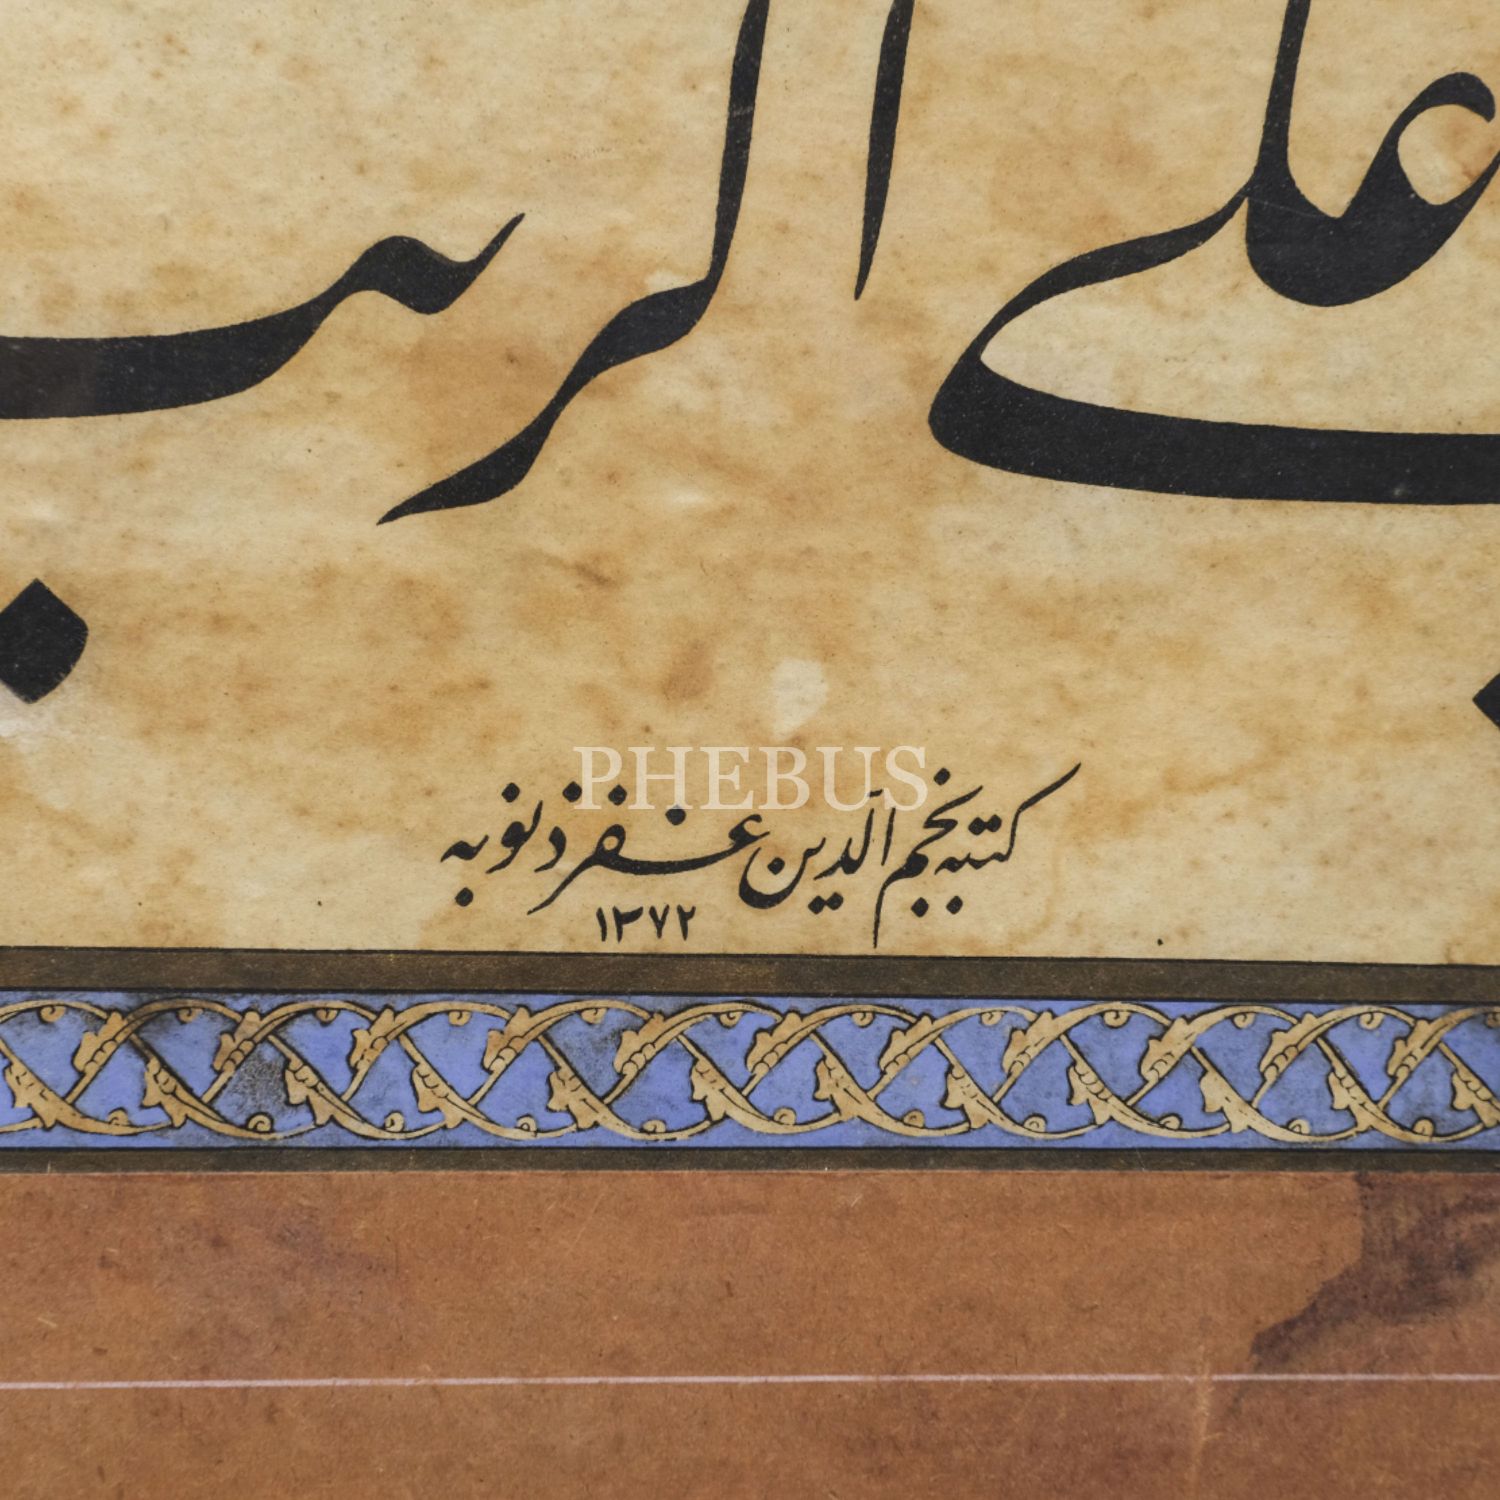 علی الرب
PHEBUS
كتبه نجم الدين غفر ذنوبه
١٣٧٢